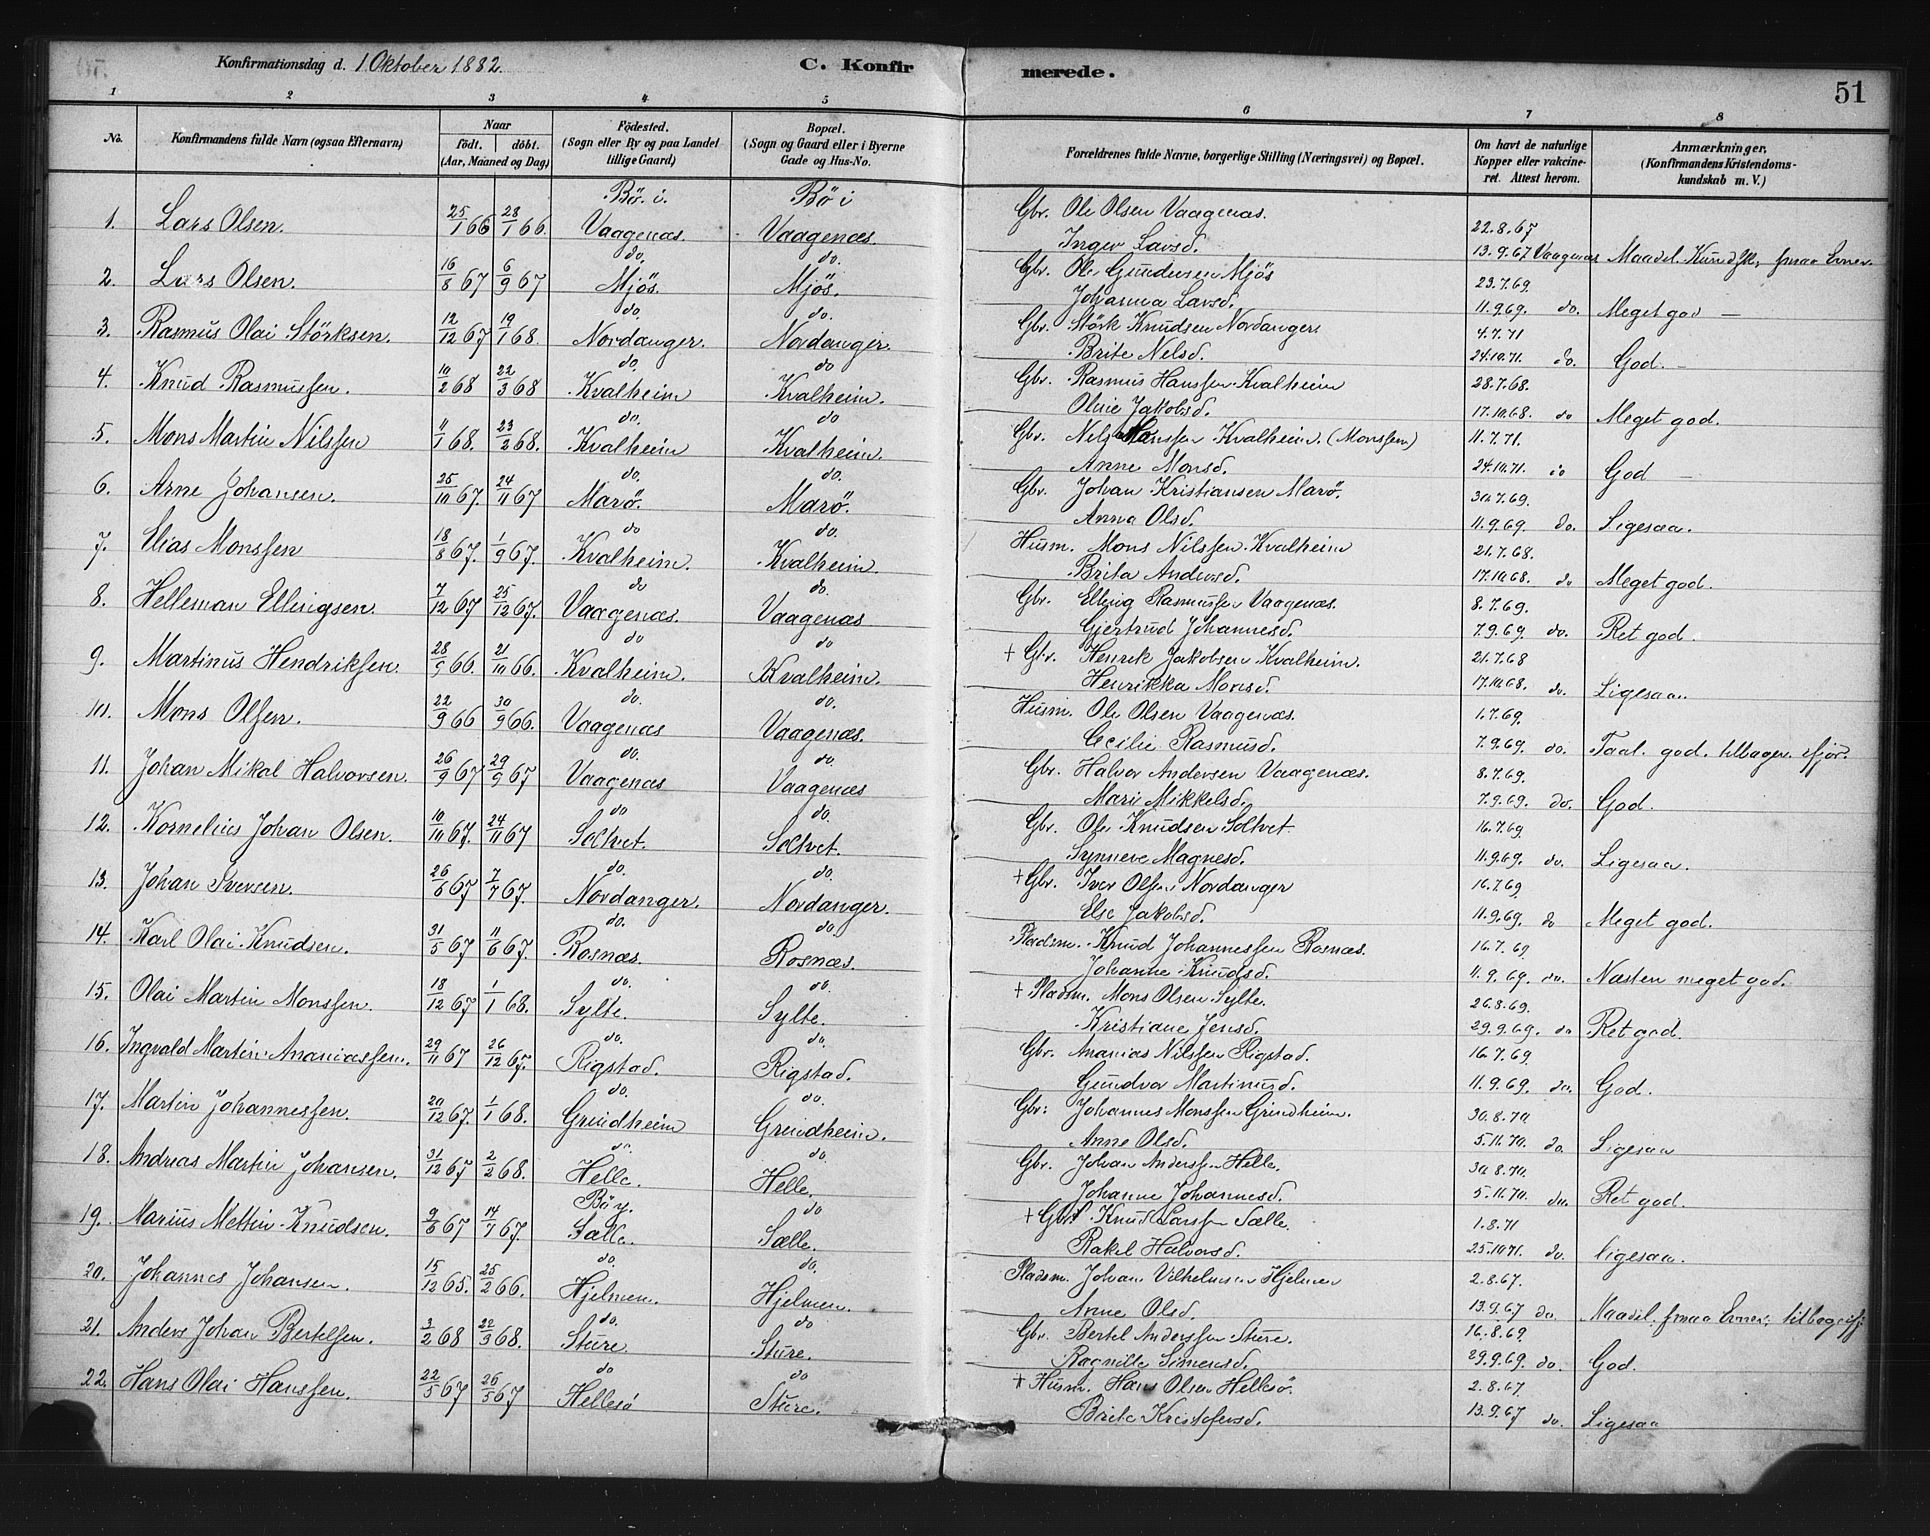 Konfirmationsdag d. 1 Oktober 1882. C. Konfirmerede. 51
1 2 3 4 5 6 7 8
No. Konfirmandens fulde Navn (ogsaa Efternavn) Naar født. døbt. (Aar, Maaned og Dag) Fødested. (Sogn eller By og paa Landet tillige Gaard) Bopæl. (Sogn og Gaard eller i Byerne Gade og Hus-No. Forældrenes fulde Navne, borgerlige Stilling (Næringsvei) og Bopæl. Om havt de naturlige Kopper eller vakcineret. Attest herom. Anmærkninger, (Konfirmandens Kristendomskundskab m. V.)
1. Lars Olsen. 25/1 66 28/1 66. Bö i. Vaagenæs. Bö i Vaagenæs. Gbr. Ole Olsen Vaagenæs. 22.8.67
Inger Larsd. 13.9.67 Vaagenæs Maadel. Kundsk, smaa Evner
2. Lars Olsen. 16/8 67 6/9 67 do. Mjös. do. Mjös. Gbr. Ole Gundersen Mjös 23.7.69
Johanna Larsd. 11.9.69. do. Meget god —
3. Rasmus Olai Störksen. 12/12 67 19/1 68. do. Nordanger. do. Nordanger. Gbr. Störk Knudsen Nordanger 4.7.71
Brite Nelsd. 24.10.71. do. God. —
4. Knud Rasmussen. 10/2 68 22/3 68 do. Kvalheim do Kvalheim. Gbr. Rasmus Hanssen Kvalheim 28.7.68.
Oline Jakobsd. 17.10.68. do Meget god.
5. Mons Martin Nilssen 11/1 68. 23/2 68. do. Kvalheim do. Kvalheim. Gbr. Nels Hanssen Kvalheim. (Monssen) 11.7.71.
Anne Monsd. 24.10.71. do God —
6. Arne Johansen. 25/10 67. 24/11 67 do. Marö. do. Marö. Gbr. Johan Kristiansen Marö. 30.7.69.
Anna Olsd. 11.9.69. do. Ligesaa.
7. Elias Monssen 18/8 67. 1/9 67. do Kvalheim. do. Kvalheim. Husm. Mons Nilssen Kvalheim 21.7.68.
Brita Andersd. 17.10.68. do Meget god.
8. Helleman Ellingsen. 7/12 67 25/12 67. do Vaagenæs. do. Vaagenæs Gbr. Elling Rasmussen Vaagenæs. 8.7.69.
Gjertrud Johannesd. 7.9.69. do. Ret god.
9. Martinus Hendriksen. 28/9 66. 21/10 66. do Kvalheim. do Kvalheim. † Gbr. Henrik Jakobsen Kvalheim. 21.7.68
Henrikka Monsd. 17.10.68. do. Ligesaa.
10. Mons Olsen. 22/9 66 30/9 66. do. Vaagenæs do. Vaagenæs. Husm. Ole Olsen Vaagenæs. 1.7.69.
Cecilie Rasmusd. 7.9.69. do. Taal. god. tilbagev. ifjor.
11. Johan Mikal Halvorsen. 26/9 67 29/9 67 do. Vaagenæs do. Vaagenæs Gbr. Halvor Andersen Vaagenæs. 8.7.69.
Mari Mikkelsd. 7.9.69. do. God.
12. Kornelius Johan Olsen. 10/10 67. 24/11 67 do Soltvet. do. Soltvet. Gbr. Ole Knudsen Soltvet. 16.7.69.
Synneve Magnesd. 11.9.69. do. Ligesaa
13. Johan Iversen. 26/6 67 7/7 67. do. Nordanger. do. Nordanger. † Gbr. Iver Olsen Nordanger 16.7.69
Else Jakobsd. 11.9.69. do Meget god.
14. Karl Olai Knudsen. 31/5 67 11/6 67. do. Rosnæs. do Rosnæs. Pladsm. Knud Johannessen Rosnæs. 16.7.69
Johanne Knudsd. 11.9.69 do. Næsten meget god.
15. Olai Martin Monssen. 18/12 67 1/1 68. do. Sylte. do. Sylte. † Pladsm. Mons Olsen Sylte. 26.8.69.
Kristiane Jensd. 29.9.69. do Ret god.
16. Ingvald Martin Ananiassen. 29/11 67 26/12 67. do. Rigstad. do. Rigstad. Gbr. Ananias Nilssen Rigstad. 16.7.69
Gundvor Martinusd. 11.9.69 do. God.
17. Martin Johannessen. 20/12 67. 1/1 68. do. Grindheim do. Grindheim. Gbr. Johannes Monssen Grindheim. 30.8.70
Anne Olsd. 5.11.70. do. Ligesaa
18. Andreas Martin Johansen. 31/12 67 2/2 68. do. Helle. do. Helle. Gbr. Johan Anderssen Helle. 30.8.70.
Johanne Johannesd. 5.11.70. do. Ret god.
19. Marius Mettin Knudsen. 9/6 67 14/7 67. Bö y. Sælle. do Sælle. † Gbr. Knud Larssen Sælle. 1.8.71
Rakel Halvorsd. 25.10.71. do. Ligesaa.
20. Johannes Johansen. 15/12 65. 25/2 66. do. Hjelmen. do. Hjelmen. Pladsm. Johan Vilhelmsen Hjelmen 2.8.67.
Anne Olsd. 13.9.67 do. Maadel. smaa Evner, tilbagev ifj
21. Anders Johan Bertelsen. 3/2 68 22/3 68. do. Sture do Sture. Gbr. Bertel Anderssen Sture. 16.8.69.
Ragnilde Simensd. 29.9.69. do. God.
22. Hans Olai Hanssen. 22/5 67 26/5 67 do Hellesö do Sture. † Husm. Hans Olsen Hellesö. 2.8.67
Brite Kristofersd. 13.9.67 do. Ligesaa